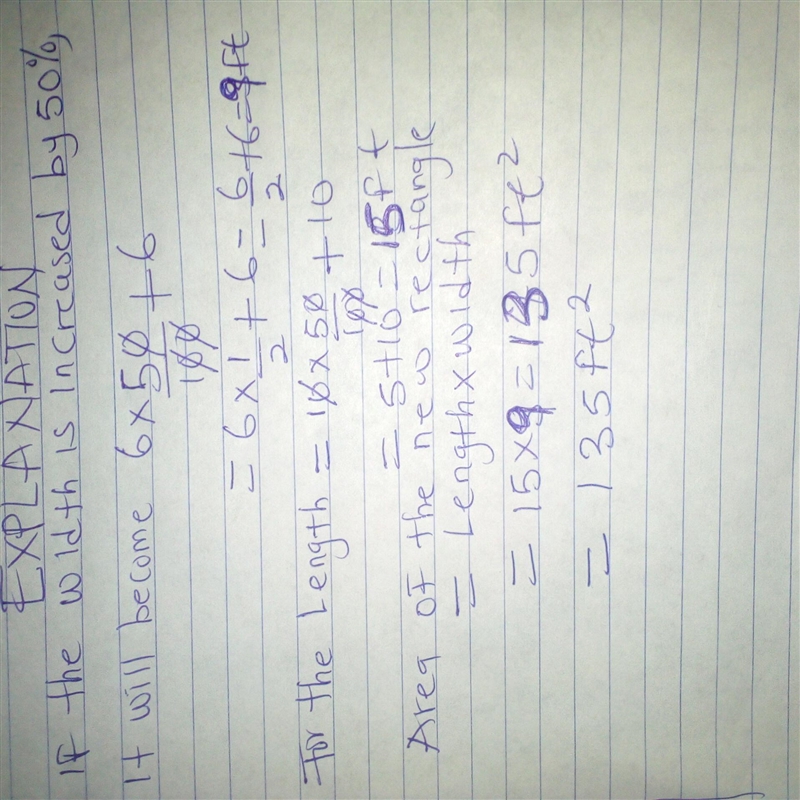 EXPLANATION
If the width is increased by 50%,
It will become 6 x 50/100 + 6
= 6 x 1/2 + 6 = 6/2 + 6 = 9ft
For the Length = 10 x 50/100 + 10
= 5 + 10 = 15ft
Area of the new rectangle
= Length x width
= 15 x 9 = 135ft²
= 135ft²